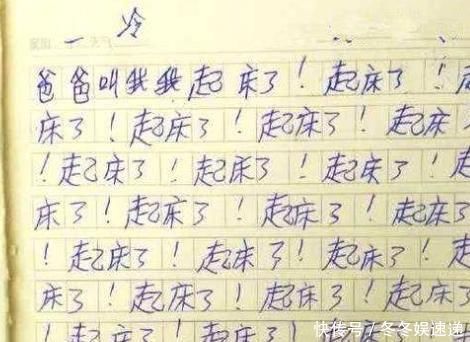 一 冷
爸爸叫我我起床了！起床了！
床了！起床了！起床了！起床
！起床了！起床了！起床了！起
床了！起床了！起床了！起床
！起床了！起床了！起床了！走
床了！起床了！起床了！起床
！起床了！起床了！起床
快传号／冬冬娱速递